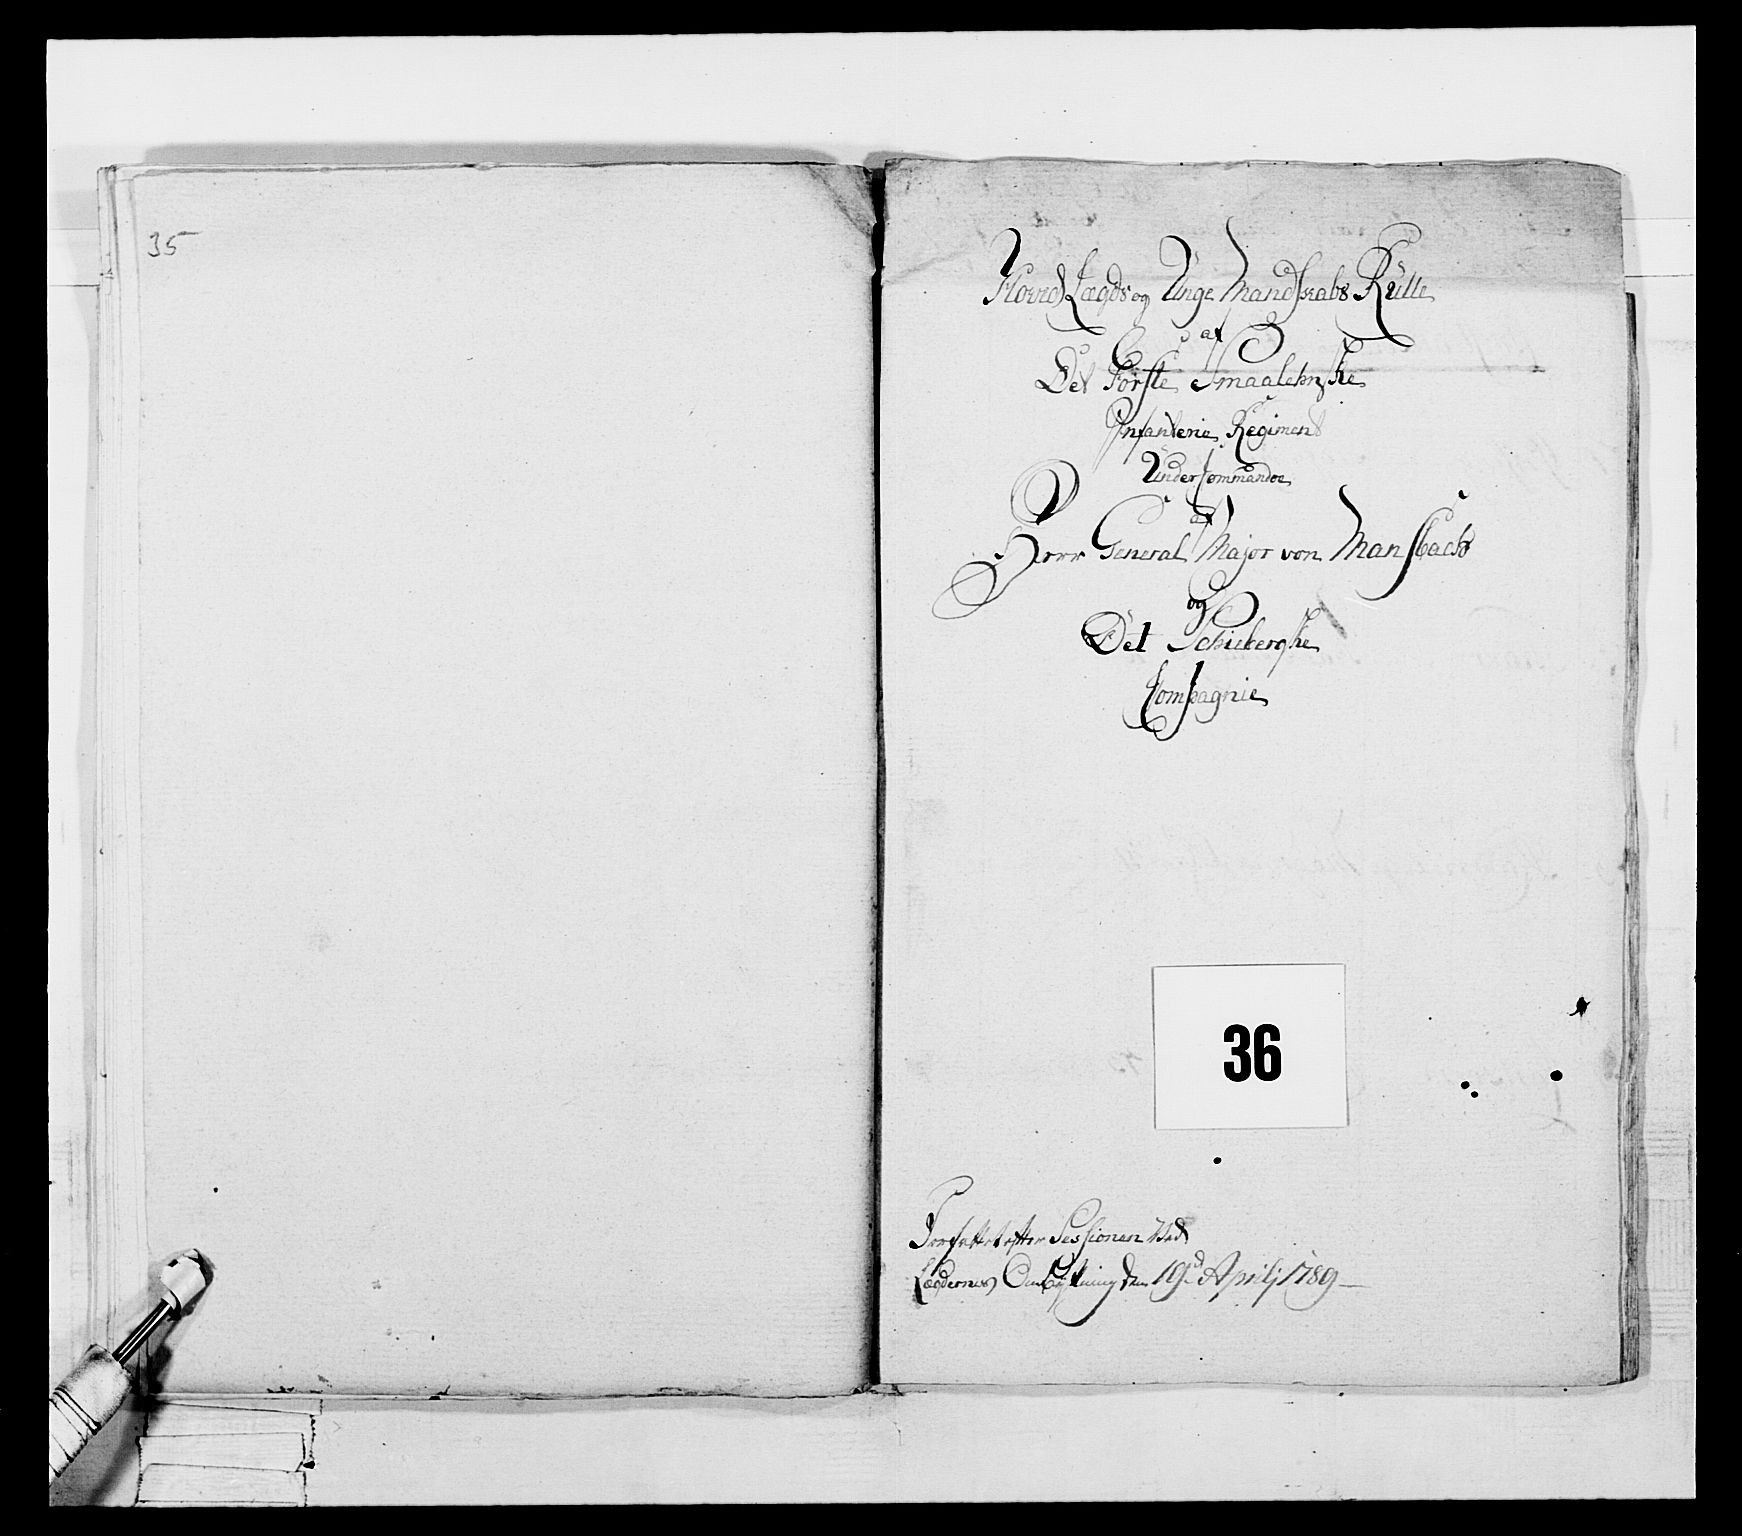 35
Hoved Lægds og Unge Mandskabs Rulle
af
Det Første Smaalehnske
Infanterie Regiment
Under Commando
af
Herr General Major von Mansbach
og
Det Schiebergske
Compagnie
36
Forfattet efter Sessionen Ved
Lægdernes Ombytning den 19de Aprilj 1789